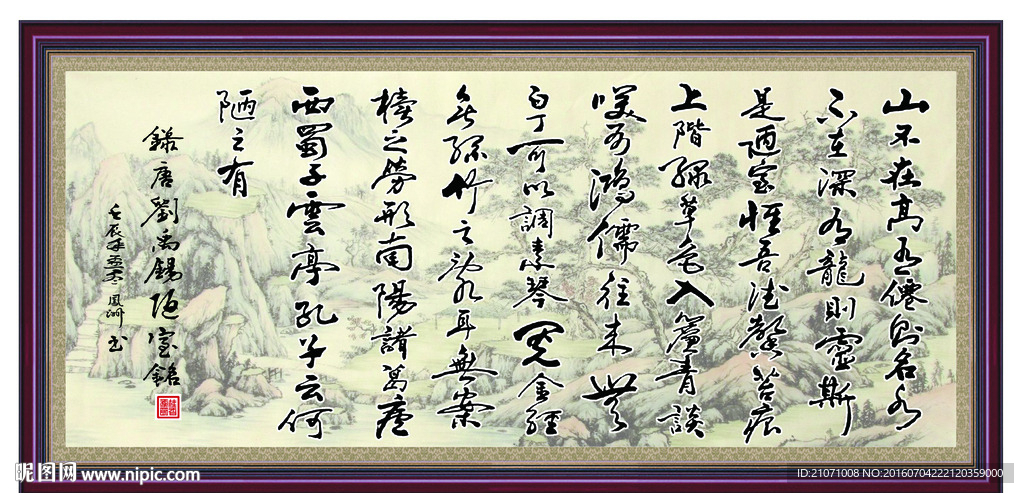 山不在高有僊則名水
不在深有龍則靈斯
是陋室惟吾德馨苔痕
上階綠草色入簾青談
笑有鴻儒往来無
白丁可以調素琴閱金經
無絲竹之亂耳無案
牘之勞形南陽諸葛廬
西蜀子雲亭孔子云何
陋之有
錄唐劉禹錫陋室銘
壬辰年鳳洲书
昵图网 www.nipic.com
ID:21071008 NO:20160704222120359000